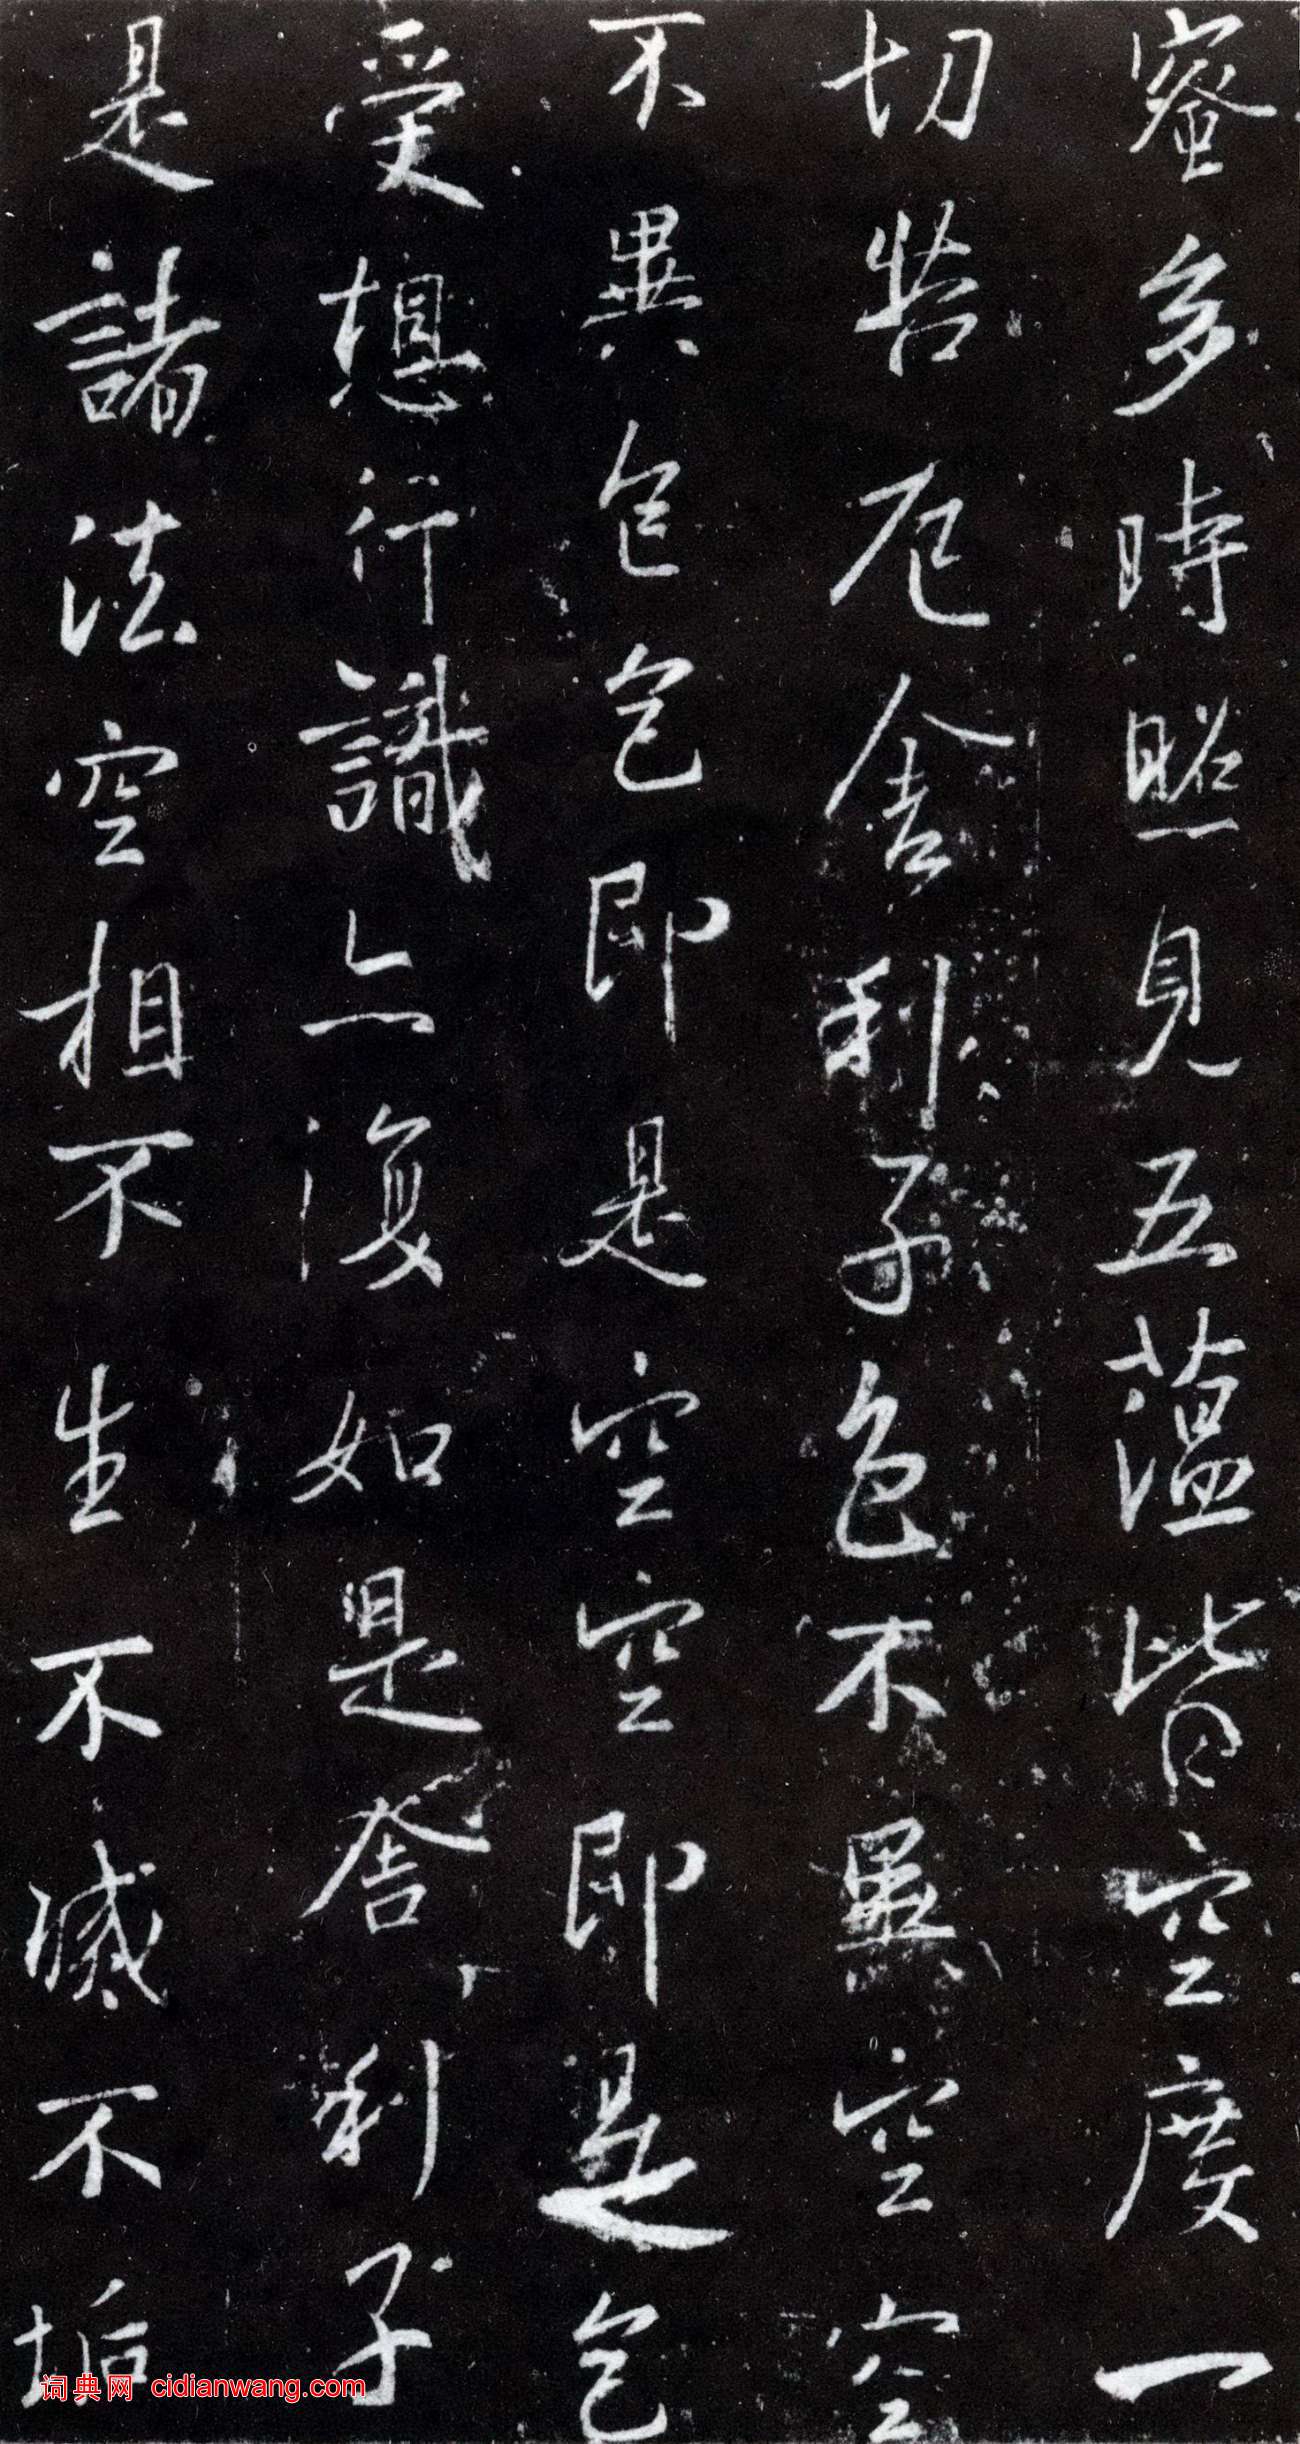 蜜多時照見五蘊皆空度一
切苦厄舍利子色不異空空
不異色色即是空空即是色
受想行識亦復如是舍利子
是諸法空相不生不滅不垢
词典网 cidianwang.com